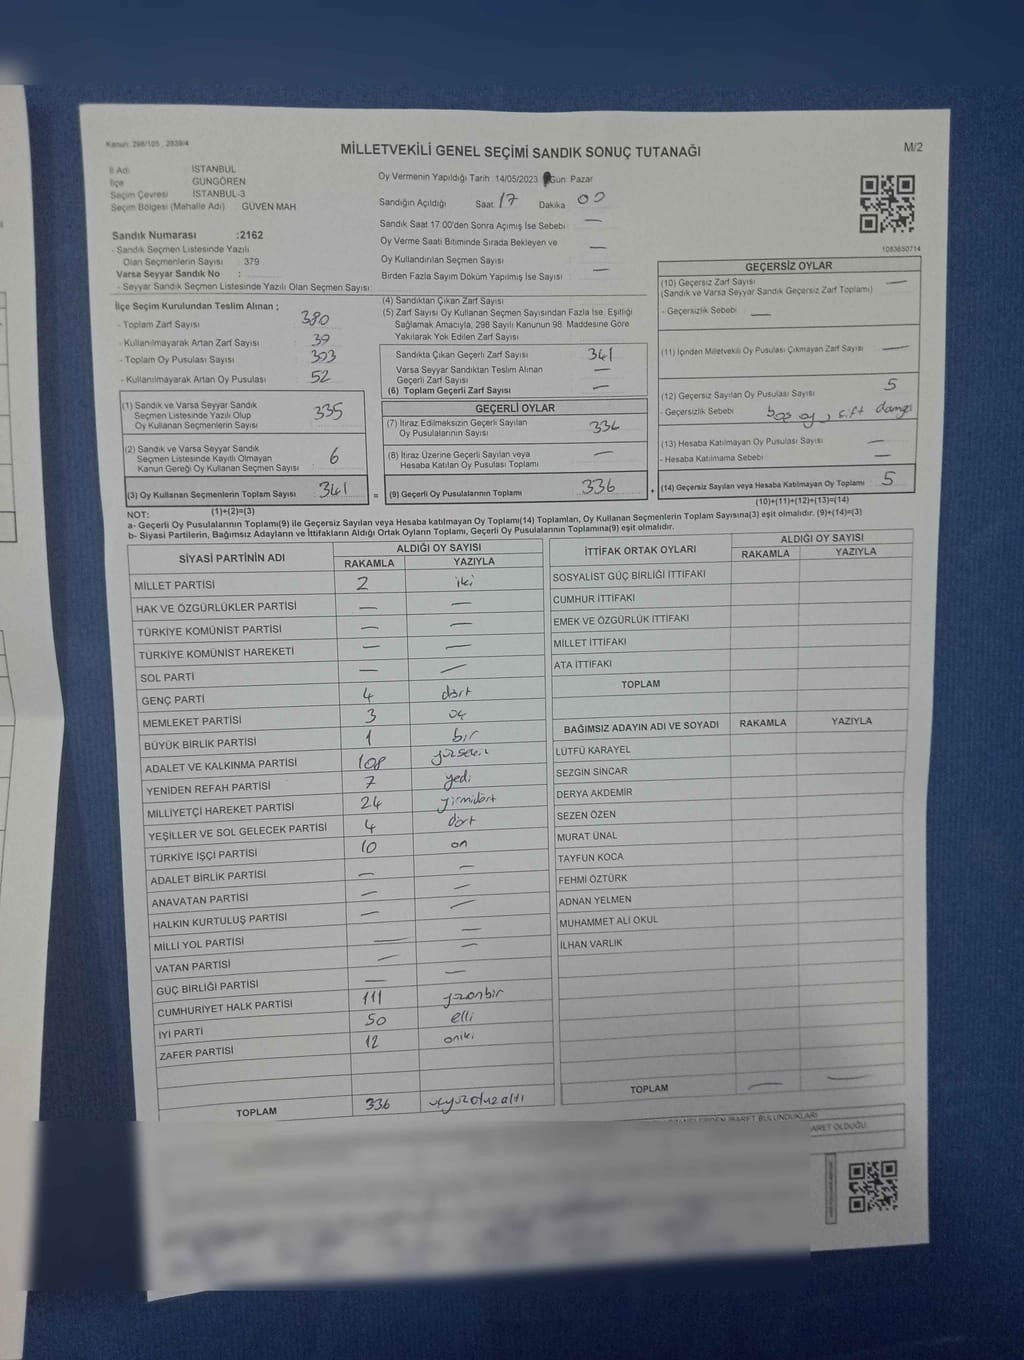 Kanun: 298/105 , 2839/4
MİLLETVEKİLİ GENEL SEÇİMİ SANDIK SONUÇ TUTANAĞI
M/2
İl Adı İSTANBUL
İlçe GÜNGÖREN
Seçim Çevresi İSTANBUL-3
Seçim Bölgesi (Mahalle Adı) GÜVEN MAH
Sandık Numarası :2162
- Sandık Seçmen Listesinde Yazılı
Olan Seçmenlerin Sayısı : 379
Varsa Seyyar Sandık No :
- Seyyar Sandık Seçmen Listesinde Yazılı Olan Seçmen Sayısı:
Oy Vermenin Yapıldığı Tarih 14/05/2023 Gün Pazar
Sandığın Açıldığı Saat 17 Dakika 00
Sandık Saat 17:00'den Sonra Açımış İse Sebebi —
Oy Verme Saati Bitiminde Sırada Bekleyen ve
Oy Kullandırılan Seçmen Sayısı —
Birden Fazla Sayım Döküm Yapılmış İse Sayısı —
1083650714
İlçe Seçim Kurulundan Teslim Alınan ;
- Toplam Zarf Sayısı 380
- Kullanılmayarak Artan Zarf Sayısı 39
- Toplam Oy Pusulası Sayısı 393
- Kullanılmayarak Artan Oy Pusulası 52
(1) Sandık ve Varsa Seyyar Sandık
Seçmen Listesinde Yazılı Olup
Oy Kullanan Seçmenlerin Sayısı 335
(2) Sandık ve Varsa Seyyar Sandık
Seçmen Listesinde Kayıtlı Olmayan
Kanun Gereği Oy Kullanan Seçmen Sayısı 6
(3) Oy Kullanan Seçmenlerin Toplam Sayısı 341 =
(4) Sandıktan Çıkan Zarf Sayısı
(5) Zarf Sayısı Oy Kullanan Seçmen Sayısından Fazla İse, Eşitliği
Sağlamak Amacıyla, 298 Sayılı Kanunun 98. Maddesine Göre
Yakılarak Yok Edilen Zarf Sayısı
Sandıkta Çıkan Geçerli Zarf Sayısı 341
Varsa Seyyar Sandıktan Teslim Alınan
Geçerli Zarf Sayısı —
(6) Toplam Geçerli Zarf Sayısı —
GEÇERLİ OYLAR
(7) İtiraz Edilmeksizin Geçerli Sayılan
Oy Pusulalarının Sayısı 336
(8) İtiraz Üzerine Geçerli Sayılan veya
Hesaba Katılan Oy Pusulası Toplamı —
(9) Geçerli Oy Pusulalarının Toplamı 336 +
GEÇERSİZ OYLAR
(10) Geçersiz Zarf Sayısı —
(Sandık ve Varsa Seyyar Sandık Geçersiz Zarf Toplamı)
- Geçersizlik Sebebi —
(11) İçinden Milletvekili Oy Pusulası Çıkmayan Zarf Sayısı —
(12) Geçersiz Sayılan Oy Pusulası Sayısı 5
- Geçersizlik Sebebi boş oy, çift damga
(13) Hesaba Katılmayan Oy Pusulası Sayısı —
- Hesaba Katılmama Sebebi —
(14) Geçersiz Sayılan veya Hesaba Katılmayan Oy Toplamı 5
NOT: (1)+(2)=(3) (10)+(11)+(12)+(13)=(14)
a- Geçerli Oy Pusulalarının Toplamı(9) ile Geçersiz Sayılan veya Hesaba katılmayan Oy Toplamı(14) Toplamları, Oy Kullanan Seçmenlerin Toplam Sayısına(3) eşit olmalıdır. (9)+(14)=(3)
b- Siyasi Partilerin, Bağımsız Adayların ve İttifakların Aldığı Ortak Oyların Toplamı, Geçerli Oy Pusulalarının Toplamına(9) eşit olmalıdır.
SİYASİ PARTİNİN ADI ALDIĞI OY SAYISI
RAKAMLA YAZIYLA
MİLLET PARTİSİ 2 iki
HAK VE ÖZGÜRLÜKLER PARTİSİ — —
TÜRKİYE KOMÜNİST PARTİSİ — —
TÜRKİYE KOMÜNİST HAREKETİ — —
SOL PARTİ — —
GENÇ PARTİ 4 dört
MEMLEKET PARTİSİ 3 üç
BÜYÜK BİRLİK PARTİSİ 1 bir
ADALET VE KALKINMA PARTİSİ 108 yüzsekiz
YENİDEN REFAH PARTİSİ 7 yedi
MİLLİYETÇİ HAREKET PARTİSİ 24 yirmidört
YEŞİLLER VE SOL GELECEK PARTİSİ 4 dört
TÜRKİYE İŞÇİ PARTİSİ 10 on
ADALET BİRLİK PARTİSİ — —
ANAVATAN PARTİSİ — —
HALKIN KURTULUŞ PARTİSİ — —
MİLLİ YOL PARTİSİ — —
VATAN PARTİSİ — —
GÜÇ BİRLİĞİ PARTİSİ — —
CUMHURİYET HALK PARTİSİ 111 yüzonbir
İYİ PARTİ 50 elli
ZAFER PARTİSİ 12 oniki
TOPLAM 336 üçyüzotuzaltı
İTTİFAK ORTAK OYLARI ALDIĞI OY SAYISI
RAKAMLA YAZIYLA
SOSYALİST GÜÇ BİRLİĞİ İTTİFAKI
CUMHUR İTTİFAKI
EMEK VE ÖZGÜRLÜK İTTİFAKI
MİLLET İTTİFAKI
ATA İTTİFAKI
TOPLAM
BAĞIMSIZ ADAYIN ADI VE SOYADI RAKAMLA YAZIYLA
LÜTFÜ KARAYEL
SEZGİN SİNCAR
DERYA AKDEMİR
SEZEN ÖZEN
MURAT ÜNAL
TAYFUN KOCA
FEHMİ ÖZTÜRK
ADNAN YELMEN
MUHAMMET ALİ OKUL
İLHAN VARLIK
TOPLAM — —
İBARET BULUNDUKLARI
OLDUĞU